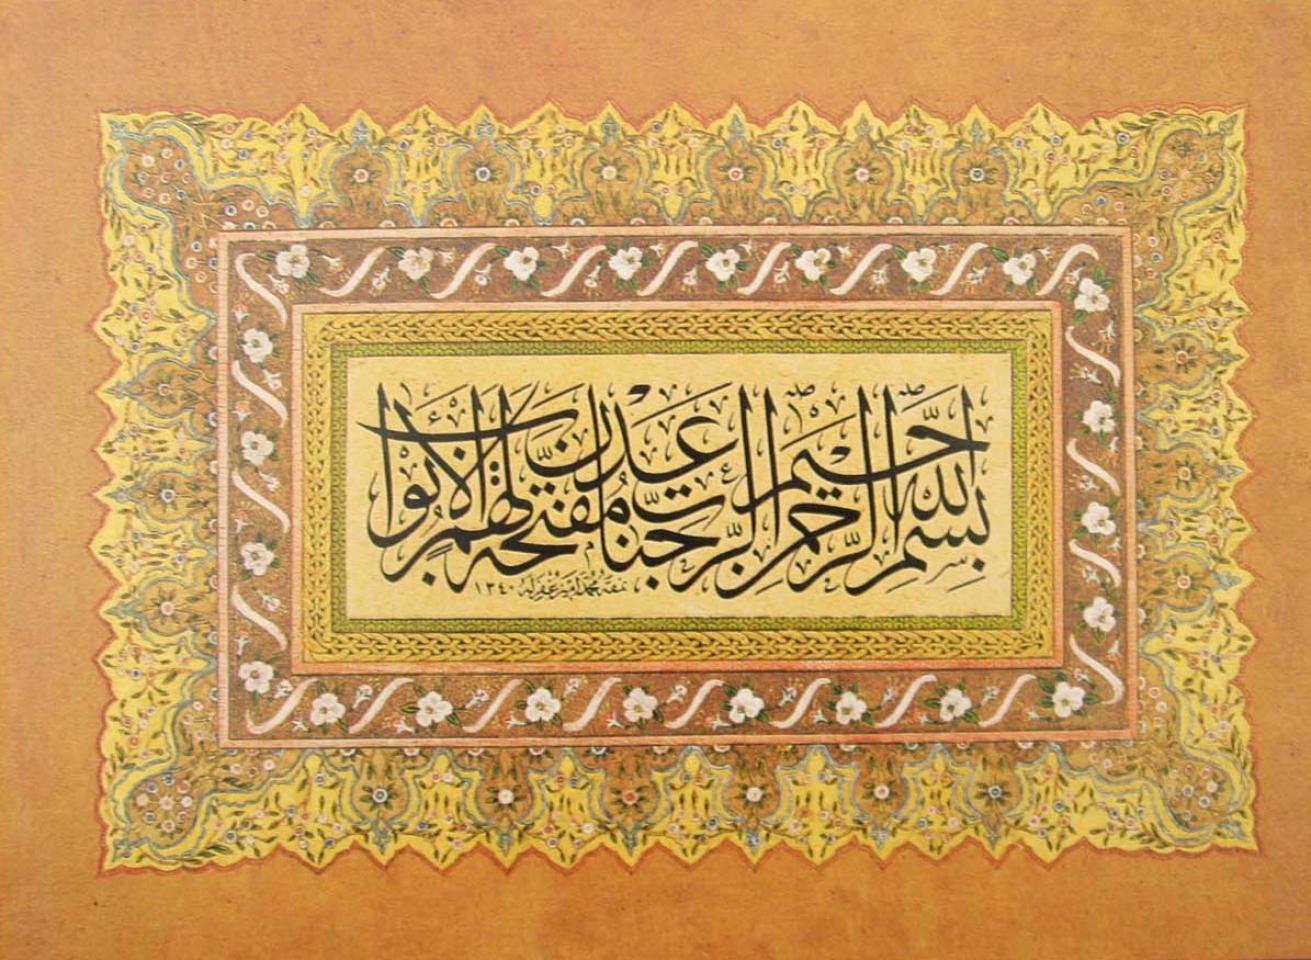 بسم الله الرحمن الرحيم
جنات عدن مفتحة لهم الأبواب
نمقه محمد أمين غفر له ١٣٤٠